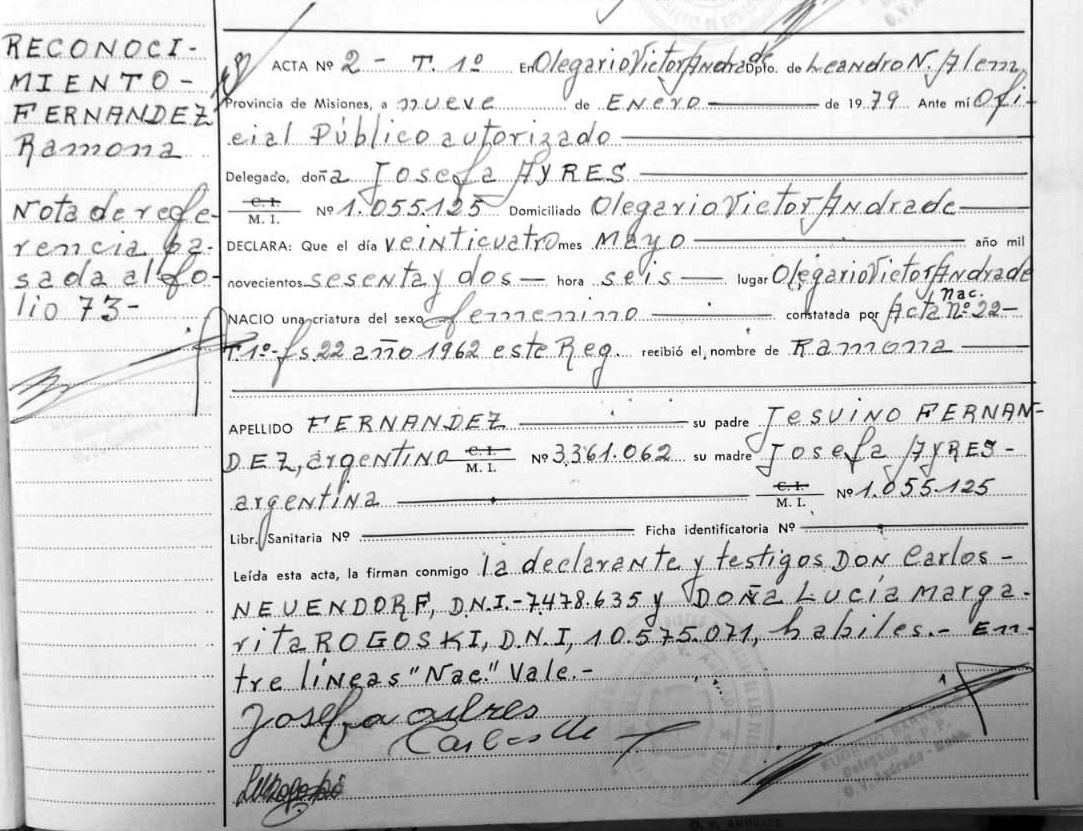 RECONOCI-
MIENTO-
FERNANDEZ
Ramona
Nota de refe-
rencia pa-
sada al fo-
lio 73-
ACTA Nº 2 - T. 1º En Olegario Victor Andrade Dpto. de Leandro N. Alem
Provincia de Misiones, a nueve de Enero de 1979 Ante mí Ofi-
cial Público autorizado
Delegado, doña Josefa AYRES
C. I.
M. I. Nº 1.055.125 Domiciliado Olegario Victor Andrade
DECLARA: Que el día veinticuatro mes Mayo año mil
novecientos sesenta y dos hora seis lugar Olegario Victor Andrade
NACIO una criatura del sexo femenino constatada por Acta Nac. Nº 22-
T. 1º-fs. 22 año 1962 este Reg. recibió el nombre de Ramona
APELLIDO FERNANDEZ su padre Jesuino FERNAN-
DEZ, argentino C. I. M. I. Nº 3.361.062 su madre Josefa AYRES-
argentina C. I. M. I. Nº 1.055.125
Libr. Sanitaria Nº Ficha identificatoria Nº
Leída esta acta, la firman conmigo la declarante y testigos Don Carlos-
NEUENDORF, D.N.I.-7.478.635 y DOÑA Lucía Marga-
rita ROGOSKI, D.N.I, 10.575.071, habiles.- En-
tre líneas "Nac." Vale.-
Josefa
O. V. Andrade